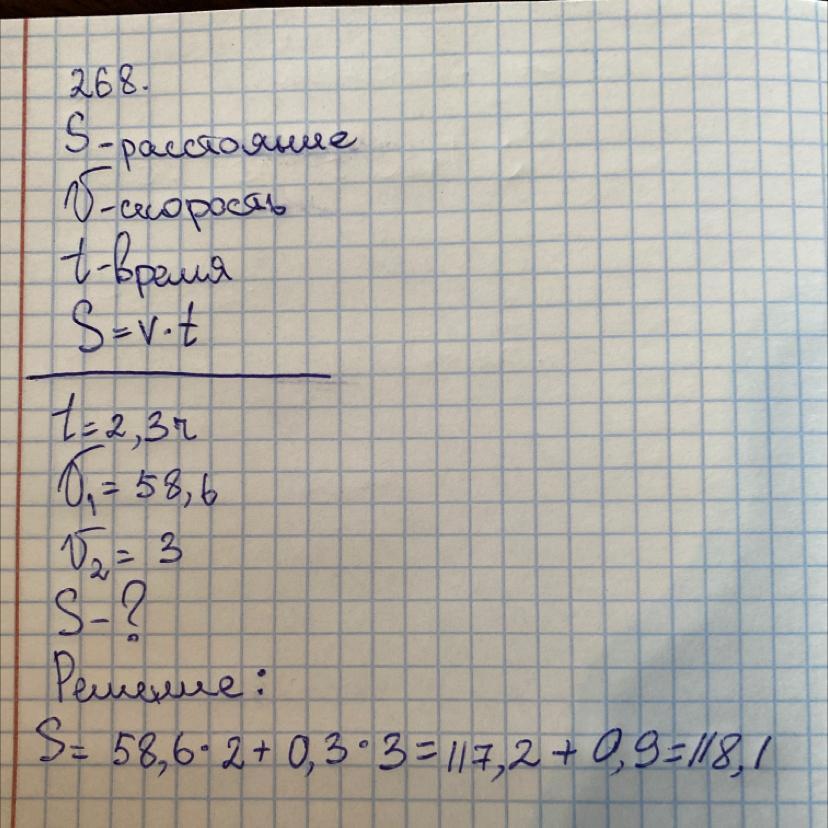 268.
S-расстояние
V-скорость
t-время
S=v·t
t=2,3ч
V₁=58,6
V₂=3
S-?
Решение:
S= 58,6·2+0,3·3=117,2+0,9=118,1